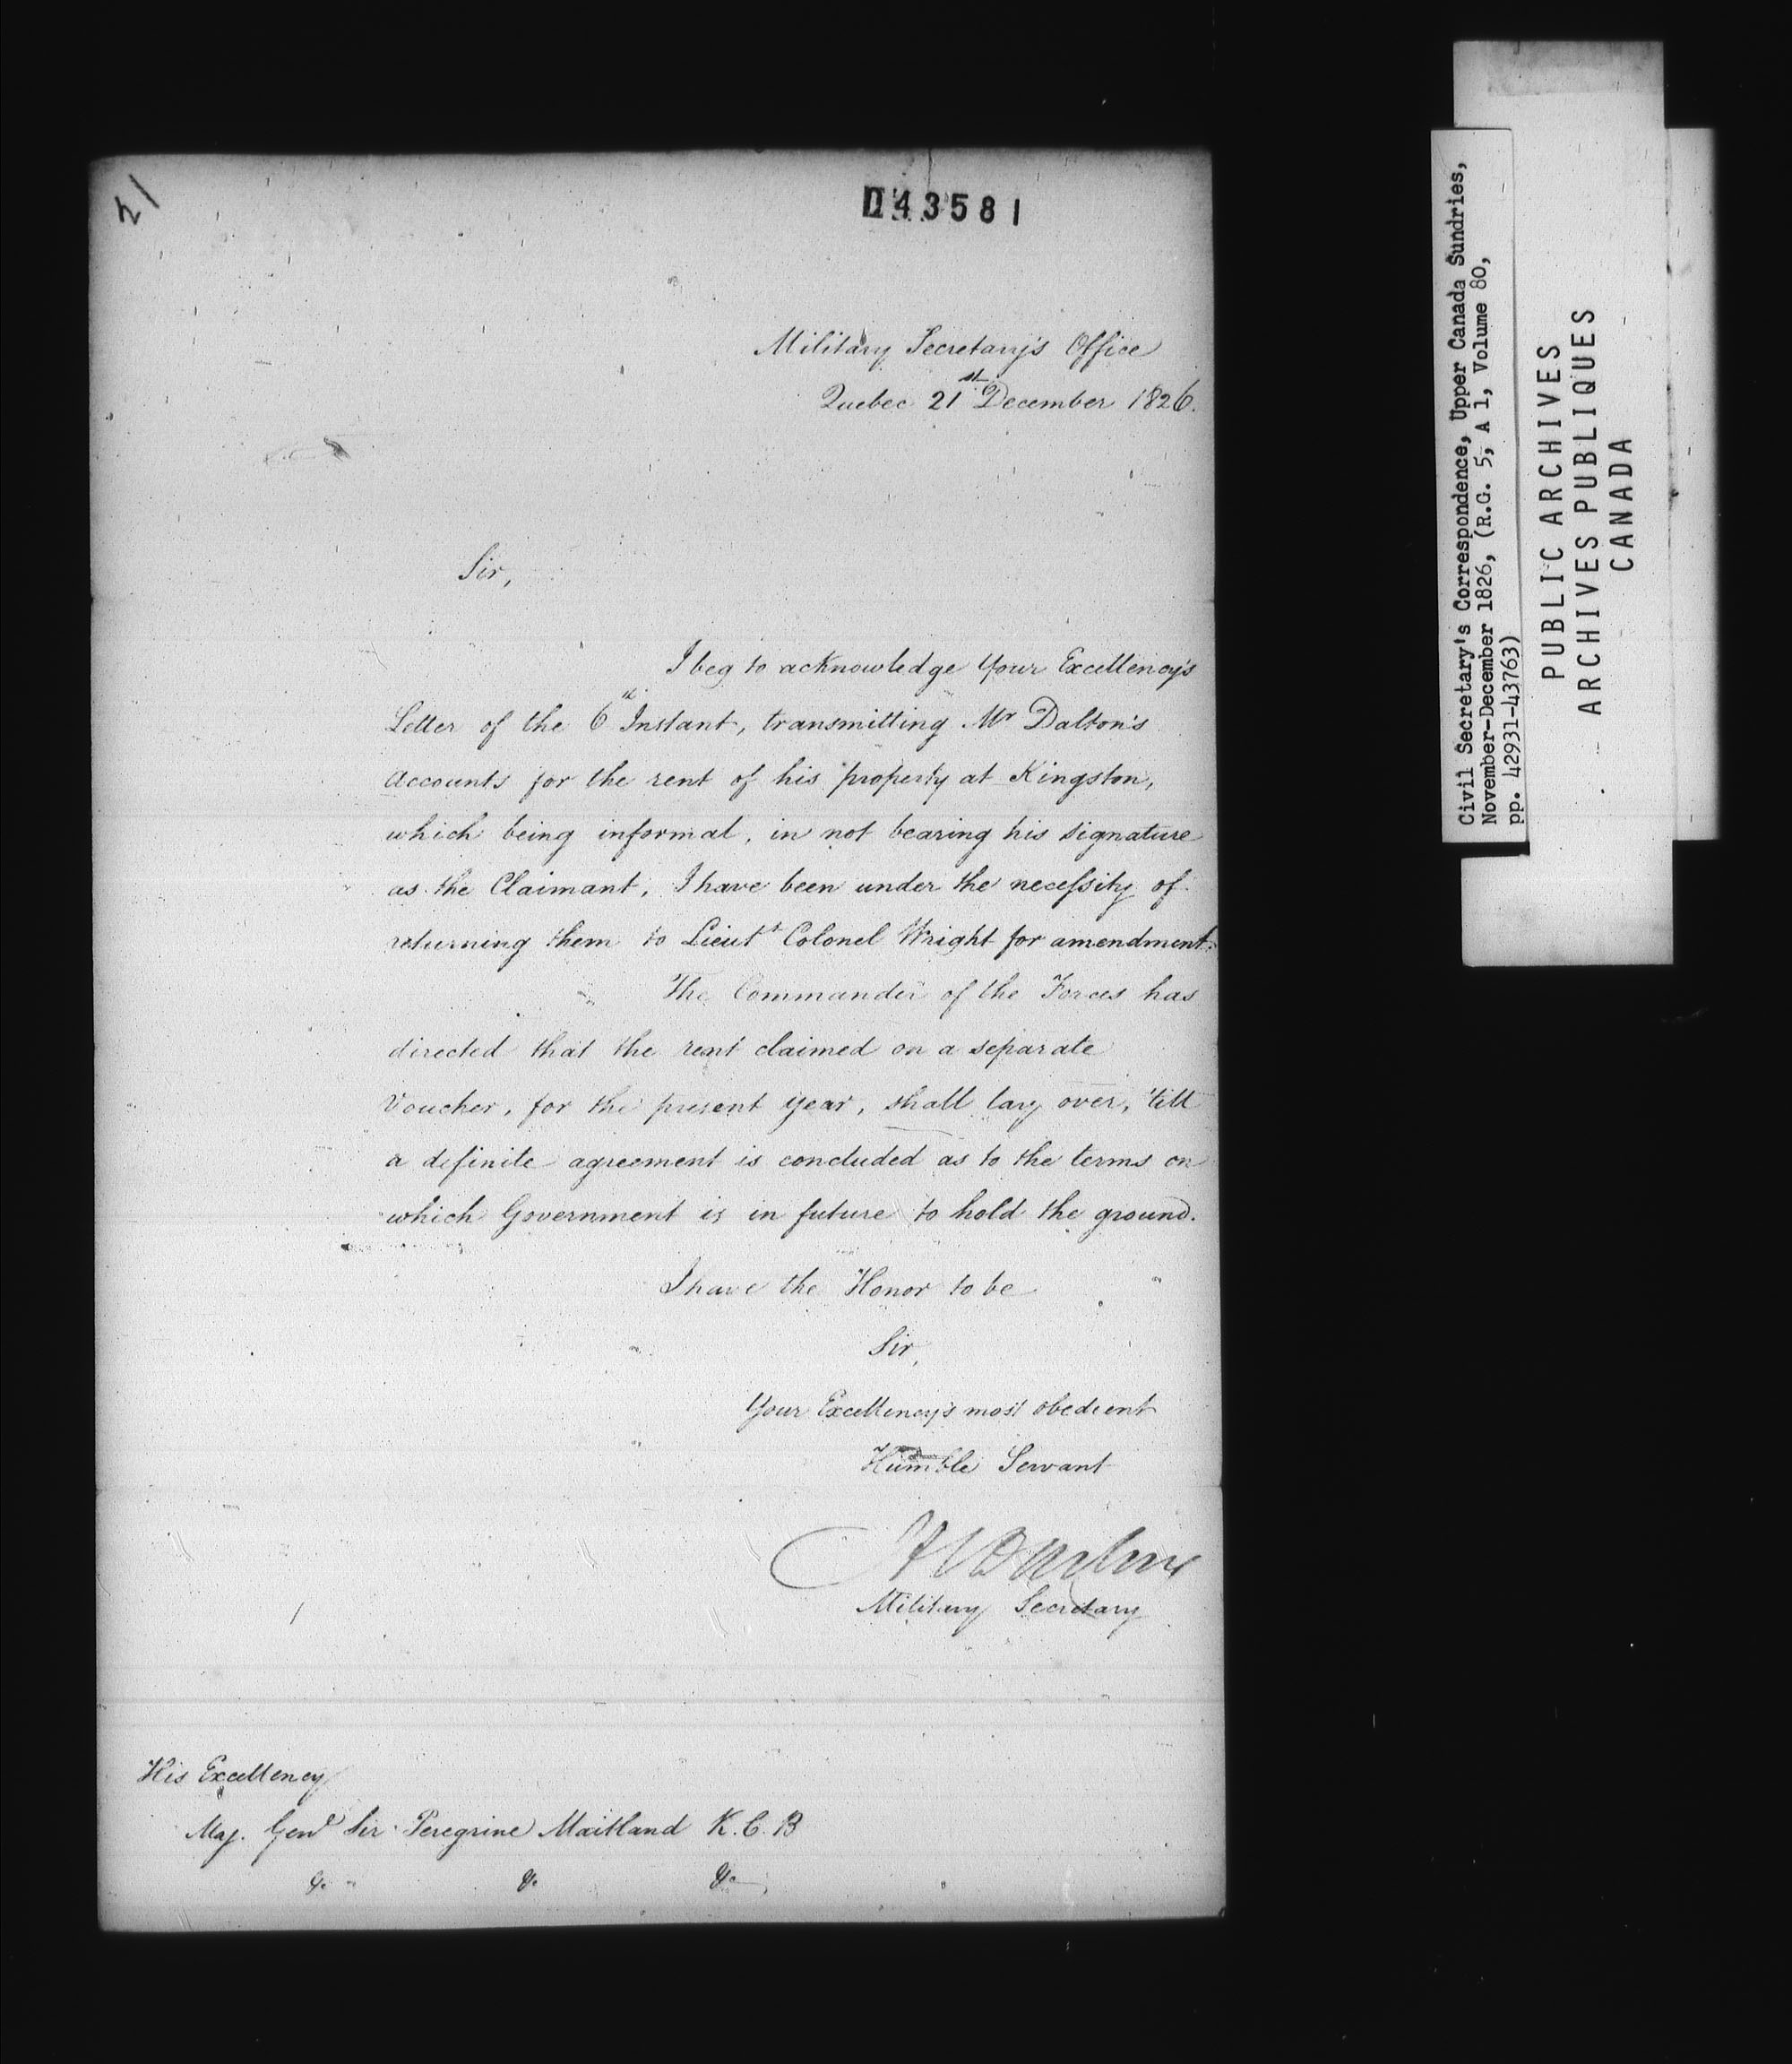 21
43581
Military Secretary's Office
Quebec 21st December 1826.
Sir,
I beg to acknowledge Your Excellency's
Letter of the 6th Instant, transmitting Mr Dalton's
Accounts for the rent of his property at Kingston,
which being informal, in not bearing his signature
as the Claimant, I have been under the necessity of
returning them to Lieutt Colonel Wright for amendment.
The Commander of the Forces has
directed that the rent claimed on a separate
Voucher, for the present year, shall lay over, 'till
a definite agreement is concluded as to the terms on
which Government is in future to hold the ground.
I have the Honor to be
Sir,
Your Excellency's most obedient
Humble Servant
Military Secretary
His Excellency
Maj. Genl Sir Peregrine Maitland K.C.B
&c &c &c
Civil Secretary's Correspondence, Upper Canada Sundries,
November-December 1826, (R.G. 5, A 1, Volume 80,
pp. 42931-43763)
PUBLIC ARCHIVES
ARCHIVES PUBLIQUES
CANADA